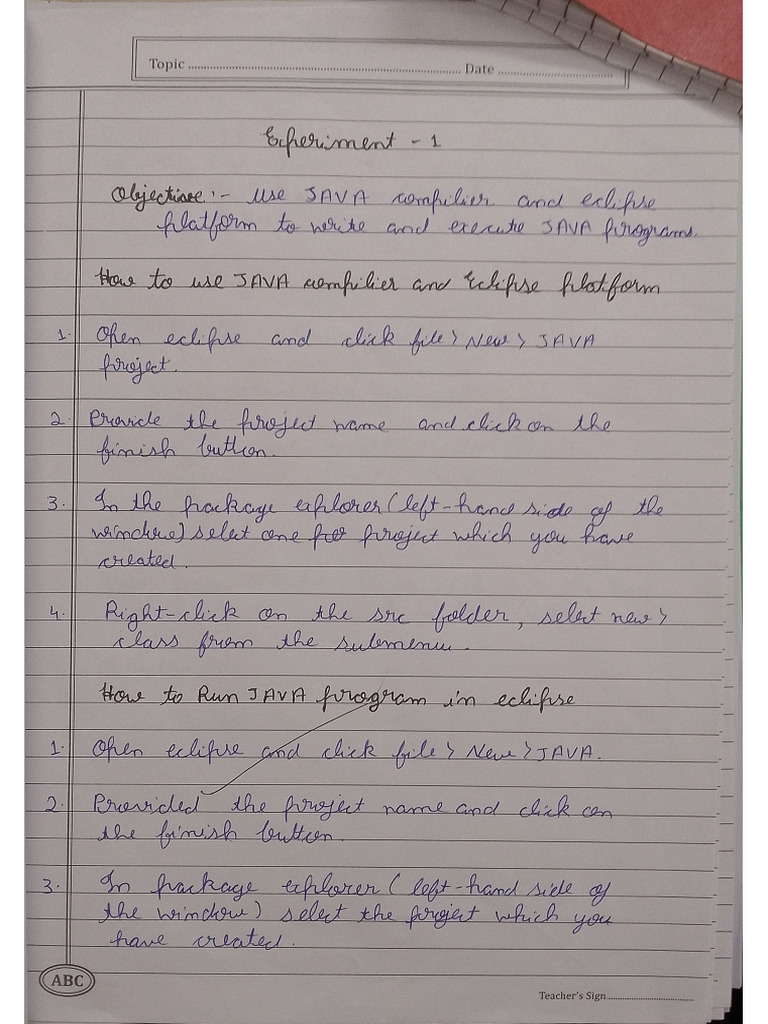 Topic ........ Date ........
Experiment - 1
Objective :- Use JAVA compilier and eclipse
platform to write and execute JAVA programs.
How to use JAVA compilier and Eclipse platform
1. Open eclipse and click file > New > JAVA
project.
2. Provide the project name and click on the
finish button.
3. In the package explorer (left-hand side of the
window) select one project which you have
created.
4. Right-click on the src folder, select new >
class from the submenu.
How to Run JAVA program in eclipse
1. Open eclipse and click file > New > JAVA.
2. Provided the project name and click on
the finish button.
3. In package explorer (left-hand side of
the window) select the project which you
have created.
ABC
Teacher's Sign........